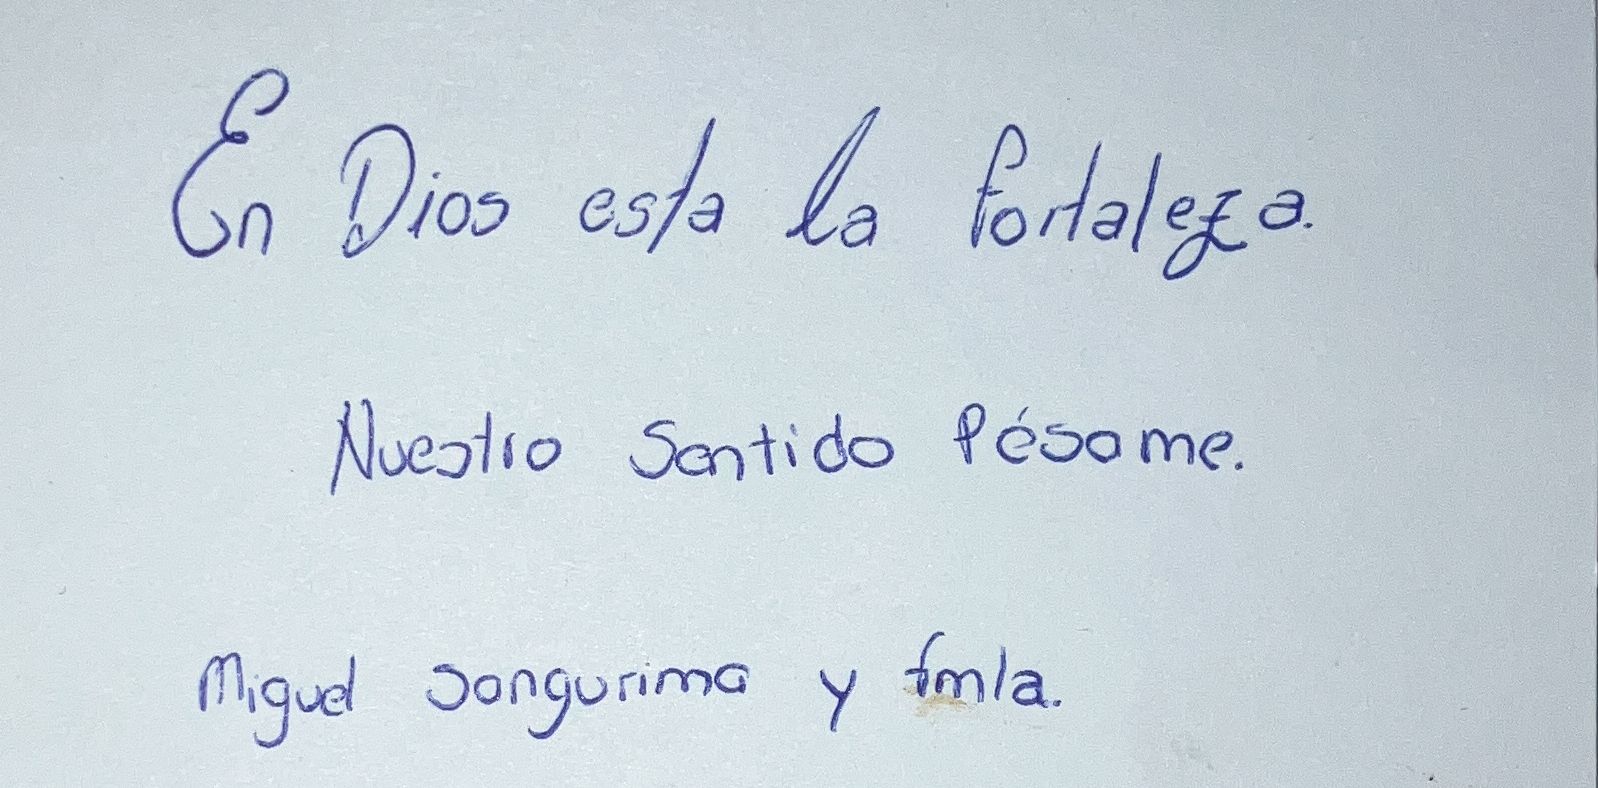 En Dios esta la fortaleza.
Nuestro Sentido Pésame.
Miguel Sangurima y fmla.